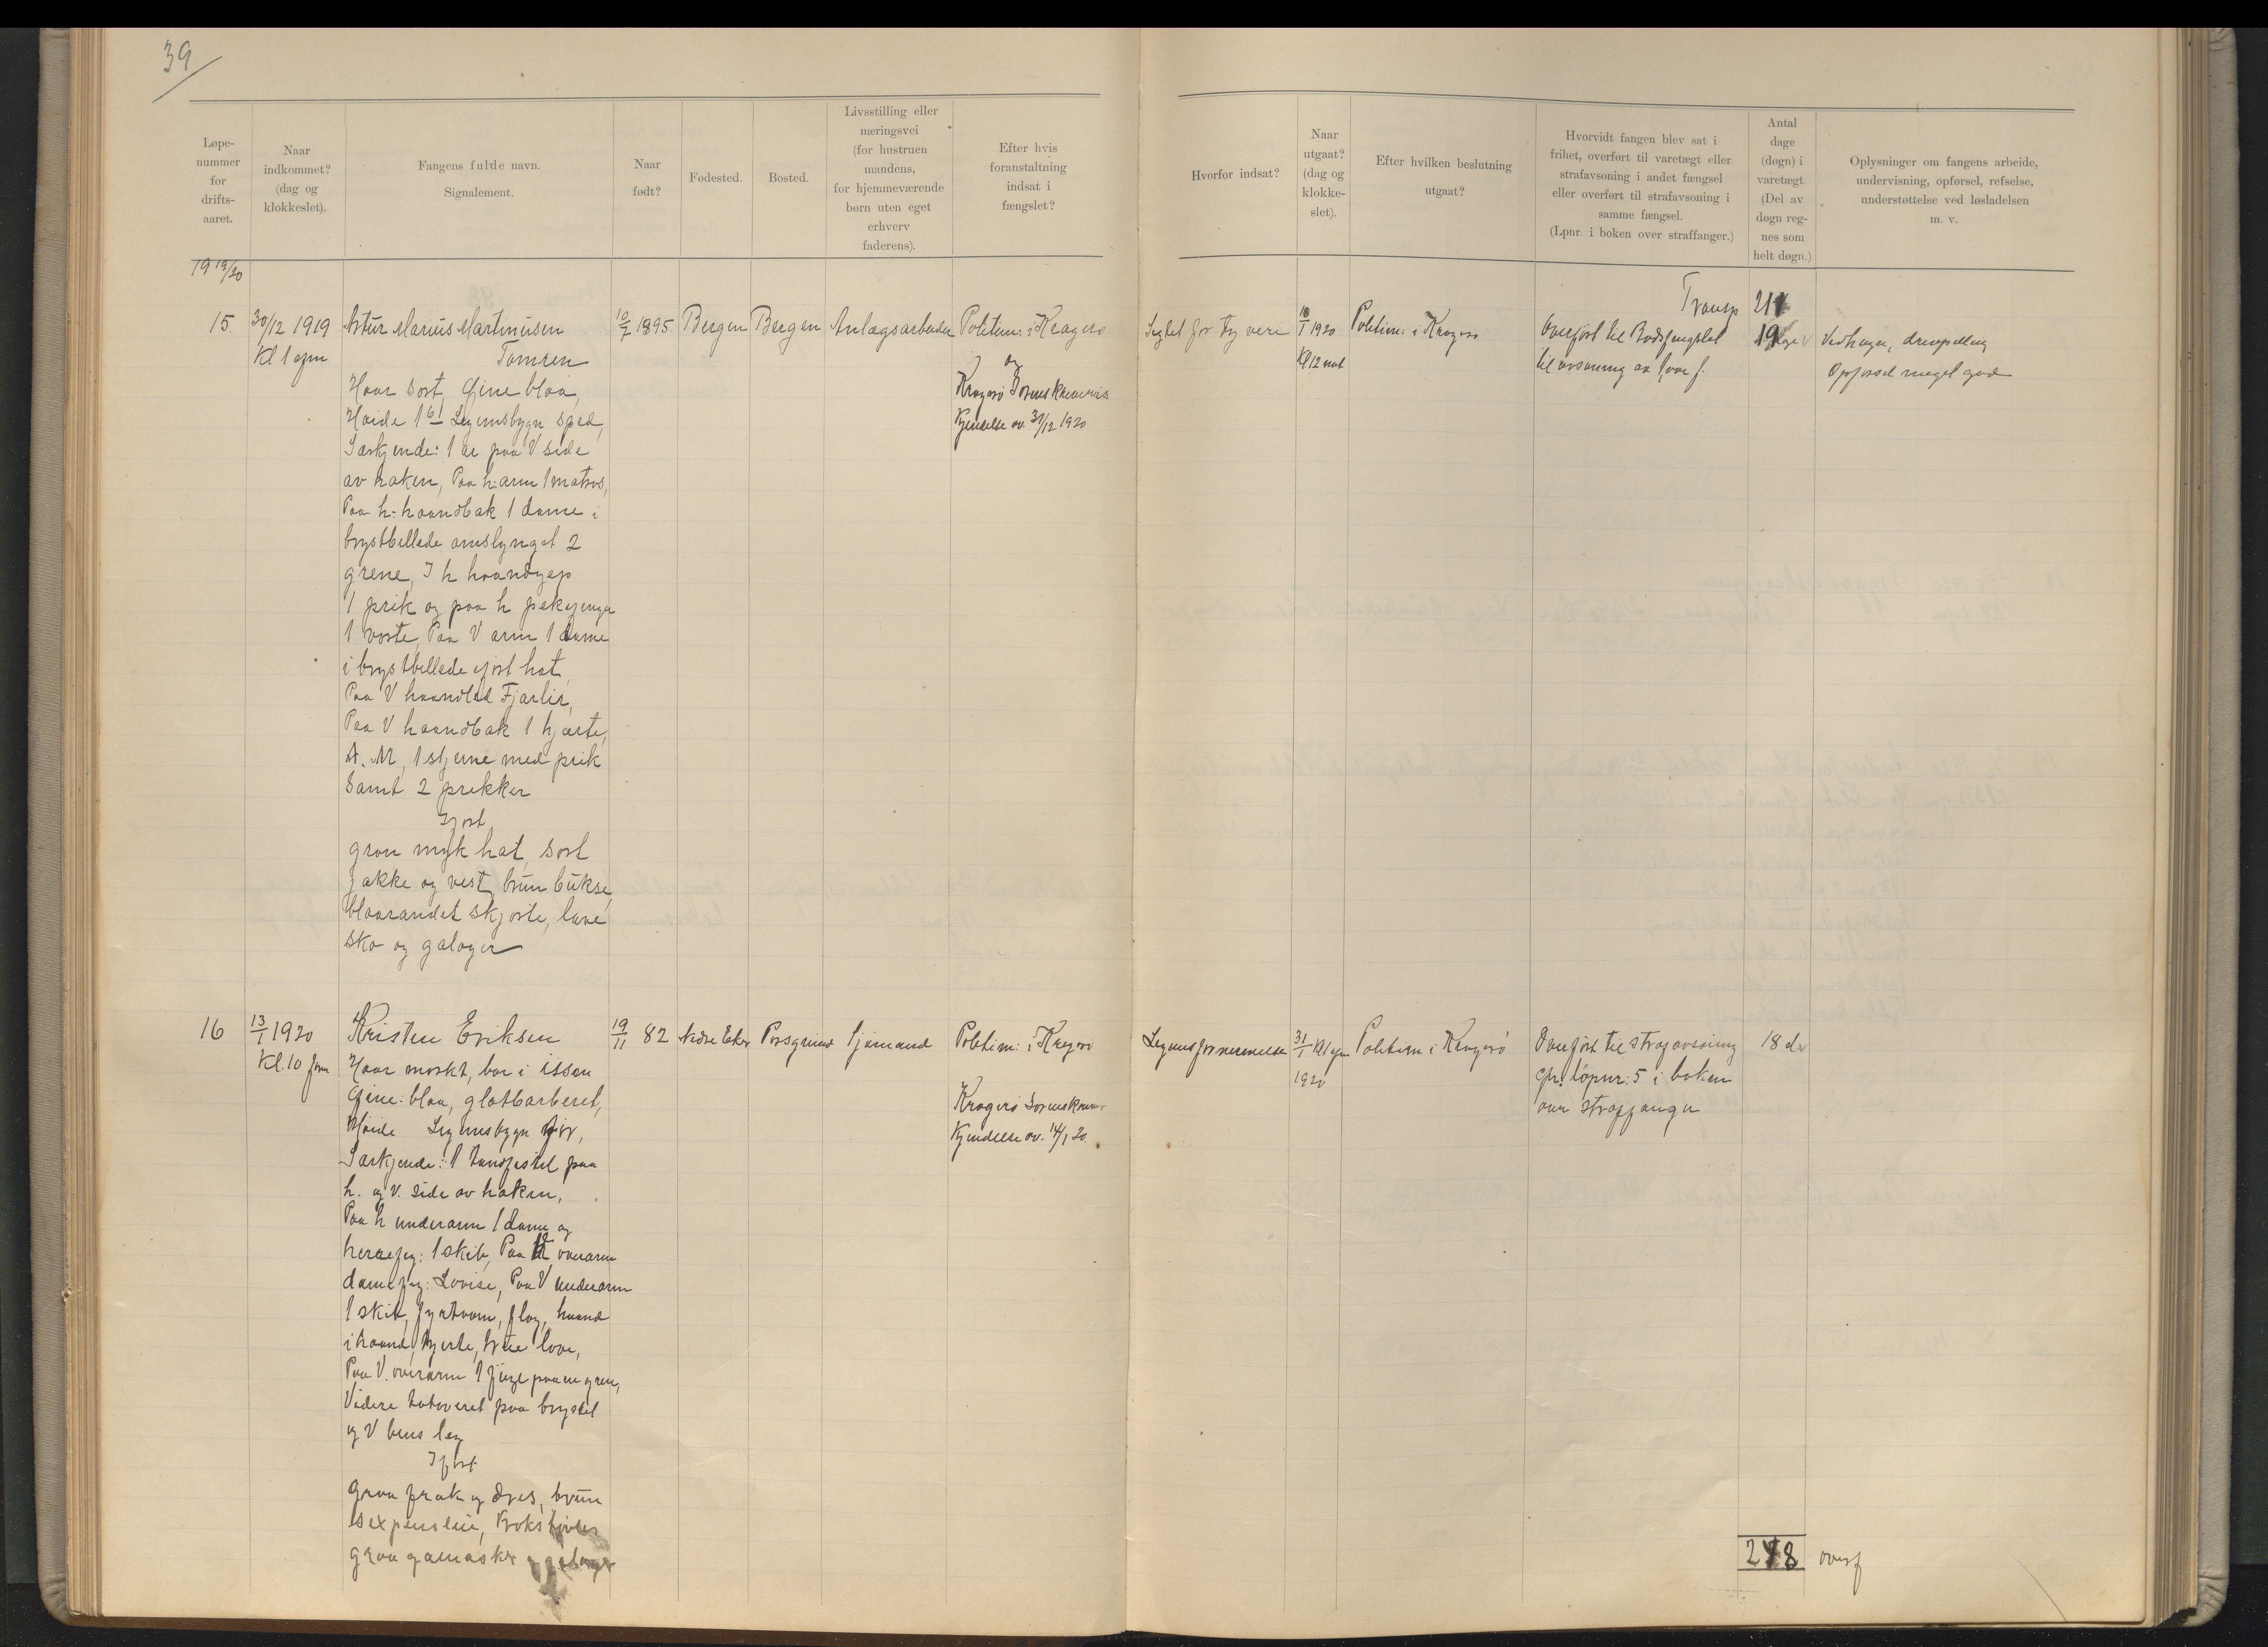 39
Løpe-
nummer
for
drifts-
aaret.
Naar
indkommet?
(dag og
klokkeslet).
Fangens fulde navn.
Signalement.
Naar
født?
Fødested.
Bosted.
Livsstilling eller
næringsvei
(for hustruen
mandens,
for hjemmeværende
børn uten eget
erhverv
faderens).
Efter hvis
foranstaltning
indsat i
fængslet?
Hvorfor indsat?
Naar
utgaat?
(dag og
klokke-
slet).
Efter hvilken beslutning
utgaat?
Hvorvidt fangen blev sat i
frihet, overført til varetægt eller
strafavsoning i andet fængsel
eller overført til strafavsoning i
samme fængsel.
(Lpnr. i boken over straffanger.)
Antal
dage
(døgn) i
varetægt.
(Del av
døgn reg-
nes som
helt døgn.)
Oplysninger om fangens arbeide,
undervisning, opførsel, refselse,
understøttelse ved løsladelsen
m. v.
1919/20
Transp
15.
30/12 1919
Kl 1 efm
Artur Marius Martinusen
Tomren
10/7 1895
Bergen
Bergen
Anlægsarbeider
Politim: i Kragerø
og
Kragerø Sorenskriveris
Kjendelse av 31/12 1920
Sigtet for tyveri
1920
Kl 12 nat
Politim: i Kragerø
Overført til Bodsfængslet
til avsoning av
Opførsel meget god
Haar sort, Øine blaa,
Høide 161 Legemsbygn sped,
Særkjende: 1 ar paa V side
av haken, Paa h. arm 1 matros,
Paa h. haandbak 1 dame i
brystbillede omslynget 2
grene, I h haandgrep
1 prik og paa h pekefinger
1 vorte, Paa V arm 1 dame
i brystbillede iført hat,
Paa V haandled Fjærlir,
Paa V haandbak 1 hjærte,
A. M, 1 stjerne med prik
samt 2 prikker
Iført
grøn myk hat, sort
jakke og vest, brun bukse,
blaarandet skjorte, lave
sko og galoger
16
13/1 1920
Kl. 10 fm
Kristen Eriksen
19/11 82
Nedre Eker
Porsgrund
Sjømand
Politim: i Kragerø
Kragerø Sorenskriver
Kjendelse av. 14/1 20.
Legemsfornærmelse
31/1 Kl 1 efm
1920
Politim i Kragerø
Overført til strafavsoning
cfr. løpnr: 5 i boken
over straffanger
18 d
Haar mørkt, bar i issen
Øine: blaa, glatbarberet,
Høide Legemsbygn
Særkjende: 1 tandfistel paa
h. og v. side av haken,
Paa h underarm 1 dame og
herrefig: 1 skib, Paa h overarm
damefig: Lovise, Paa V underarm
1 skib, fyrtaarn, flag, haand
i haand, hjerte, true love,
Paa V. overarm 1 fugl paa en gren,
Videre tatoveret paa brystet
og V bens læg
Iført
graa frak og dres, brun
sixpenslue, boksstøvler
graa gamasker galoger
248 overf